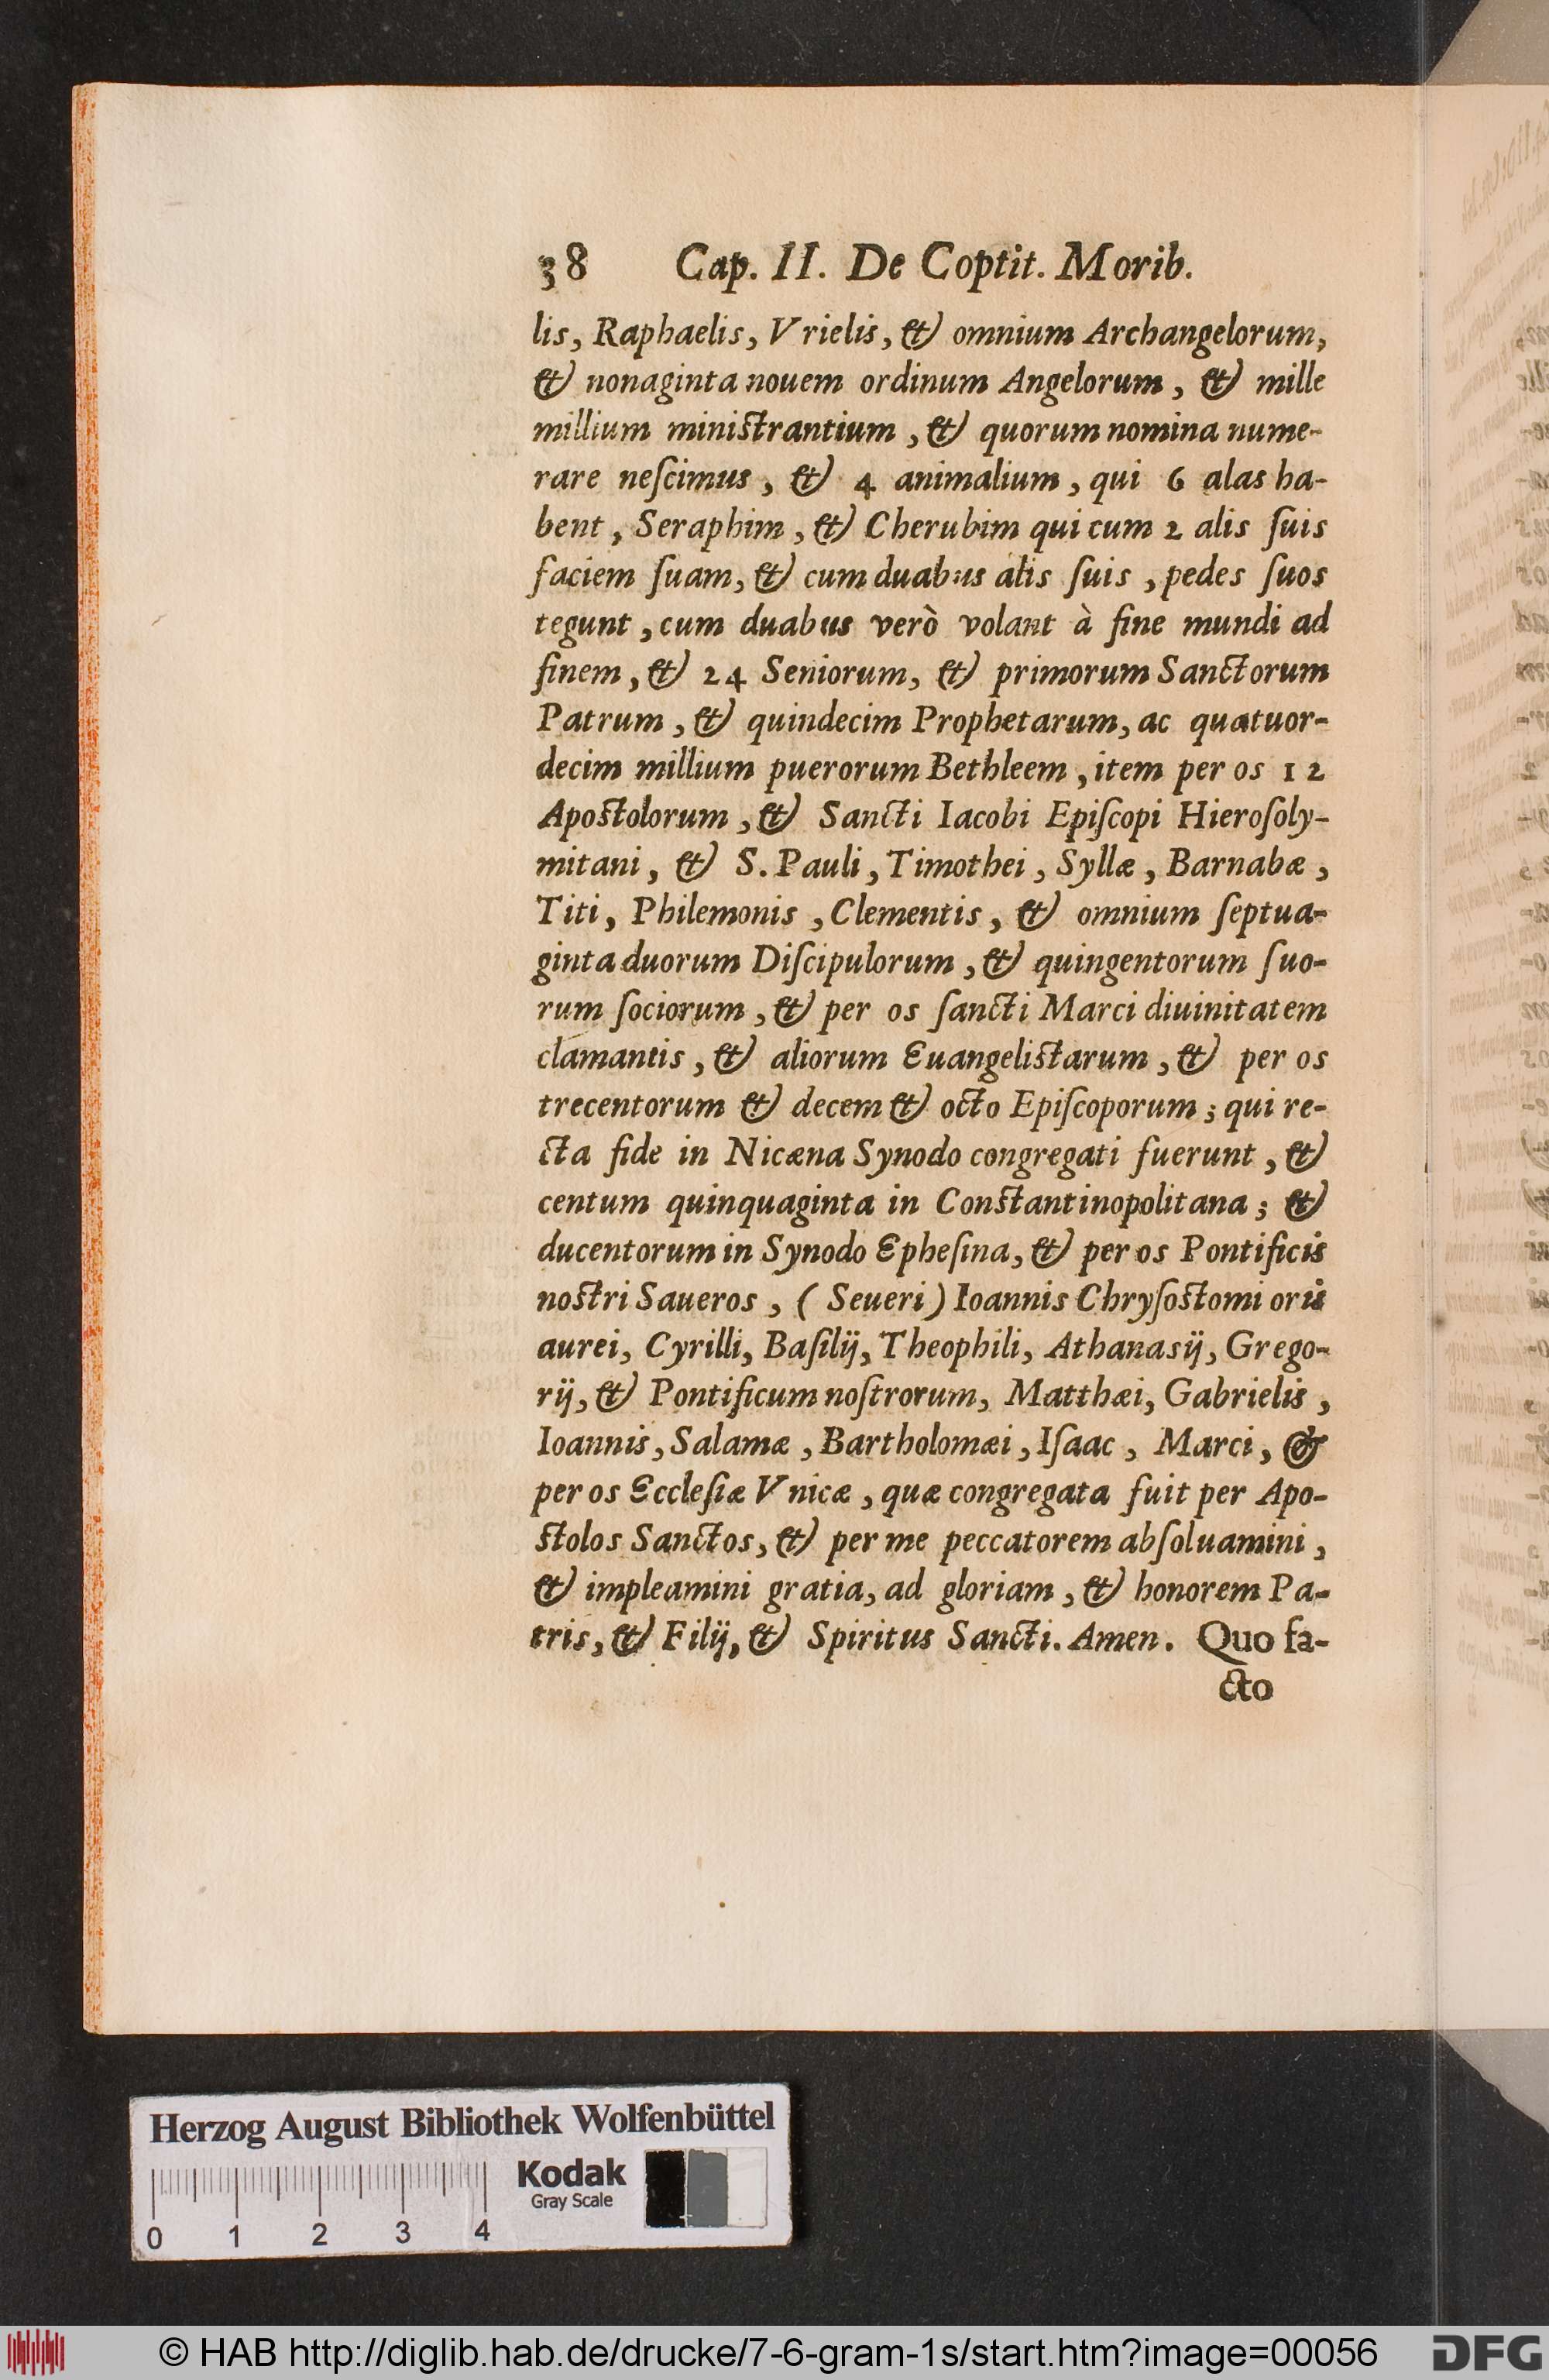 38 Cap. II. De Coptit. Morib.
lis, Raphaelis, Vrielis, & omnium Archangelorum,
& nonaginta nouem ordinum Angelorum, & mille
millium miniſtrantium, & quorum nomina nume-
rare neſcimus, & 4 animalium, qui 6 alas ha-
bent, Seraphim, & Cherubim qui cum 2 alis ſuis
faciem ſuam, & cum duabus alis ſuis, pedes ſuos
tegunt, cum duabus verò volant à fine mundi ad
finem, & 24 Seniorum, & primorum Sanctorum
Patrum, & quindecim Prophetarum, ac quatuor-
decim millium puerorum Bethleem, item per os 12
Apoſtolorum, & Sancti Iacobi Epiſcopi Hieroſoly-
mitani, & S. Pauli, Timothei, Syllæ, Barnabæ,
Titi, Philemonis, Clementis, & omnium ſeptua-
ginta duorum Diſcipulorum, & quingentorum ſuo-
rum ſociorum, & per os ſancti Marci diuinitatem
clamantis, & aliorum Euangeliſtarum, & per os
trecentorum & decem & octo Epiſcoporum; qui re-
cta fide in Nicæna Synodo congregati fuerunt, &
centum quinquaginta in Conſtantinopolitana; &
ducentorum in Synodo Epheſina, & per os Pontificis
noſtri Saueros, (Seueri) Ioannis Chryſoſtomi oris
aurei, Cyrilli, Baſilij, Theophili, Athanasij, Grego-
rij, & Pontificum noſtrorum, Matthæi, Gabrielis,
Ioannis, Salamæ, Bartholomæi, Iſaac, Marci, &
per os Eccleſiæ Vnicæ, quæ congregata fuit per Apo-
ſtolos Sanctos, & per me peccatorem abſoluamini,
& impleamini gratia, ad gloriam, & honorem Pa-
tris, & Filij, & Spiritus Sancti. Amen. Quo fa-
cto
Herzog August Bibliothek Wolfenbüttel
Kodak
Gray Scale
0 1 2 3 4
© HAB http://diglib.hab.de/drucke/7-6-gram-1s/start.htm?image=00056
DFG